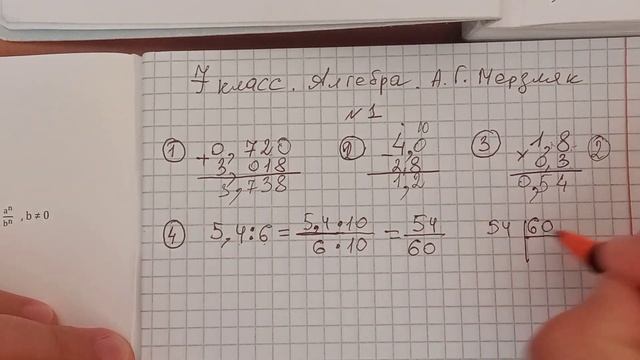 7 класс. Алгебра. А. Г. Мерзляк
№ 1
① + 0,720
3,018
3,738
② 10
- 4,0
2,8
1,2
③ × 1,8
0,3
0,54
②
④ 5,4 : 6 = 5,4 · 10 / 6 · 10 = 54 / 60
54 | 60
aⁿ / bⁿ , b ≠ 0